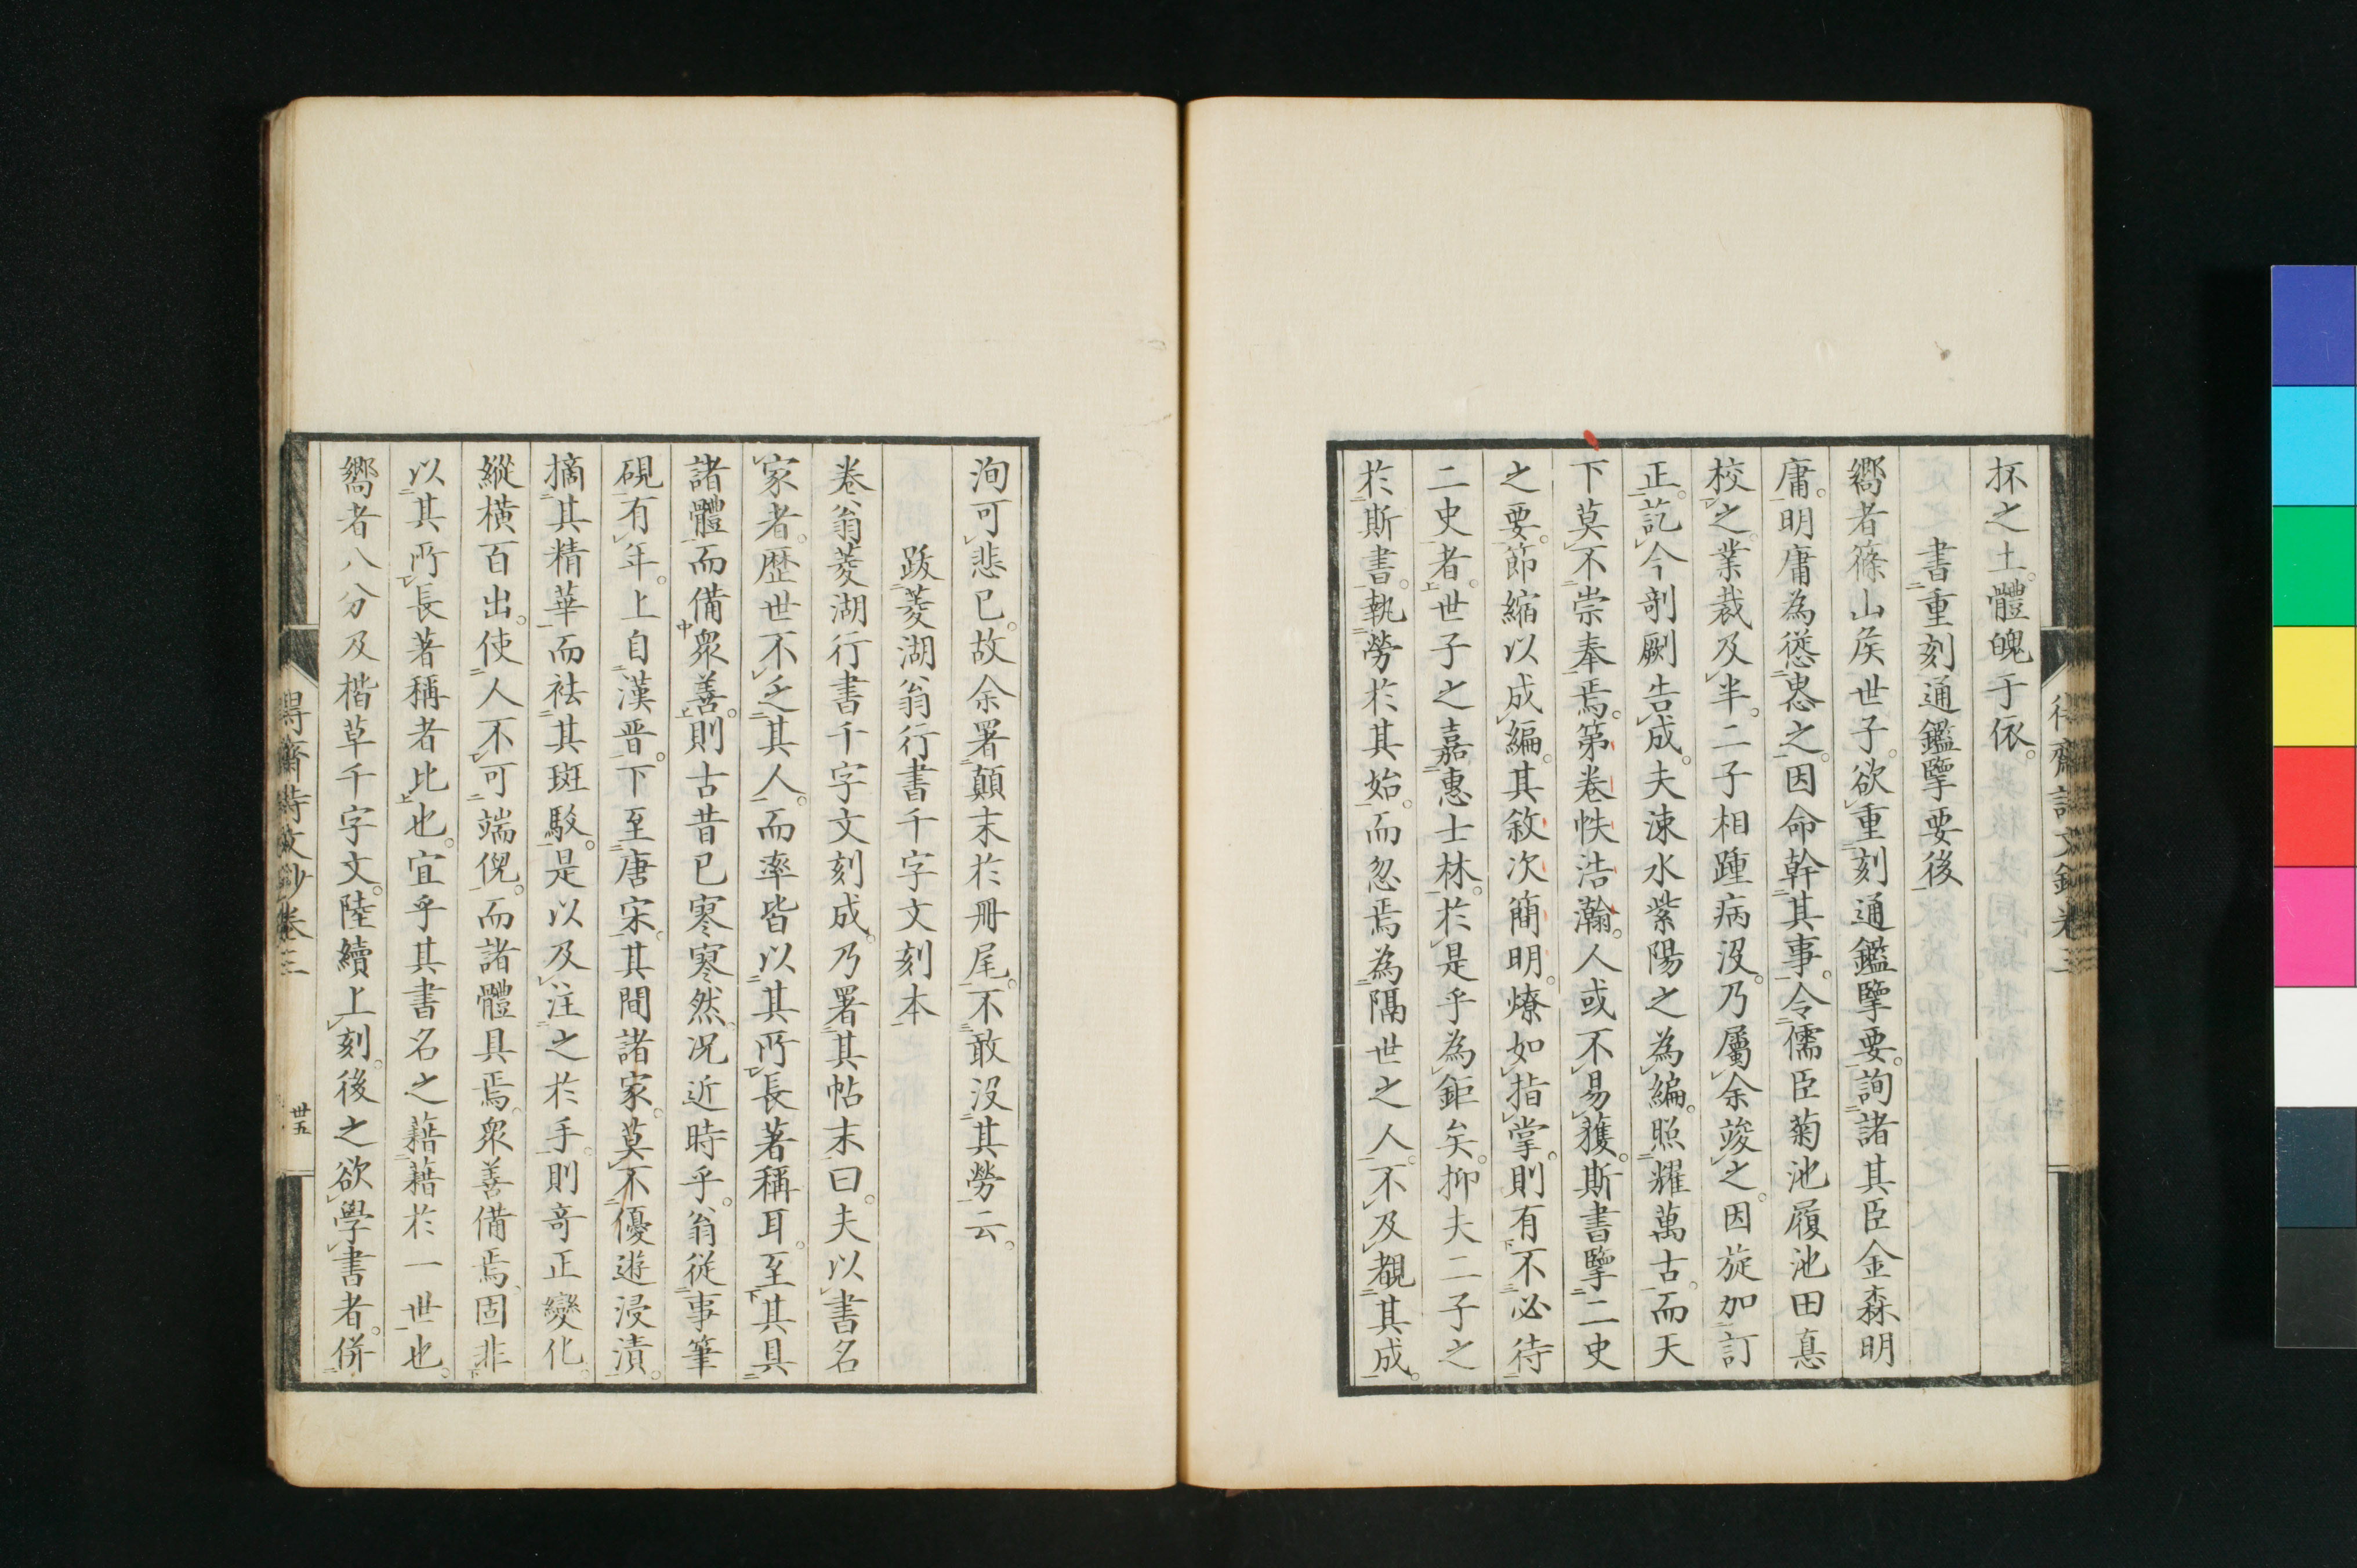 抔之土。體魄于依。
書重刻通鑑擥要後
嚮者篠山矦世子。欲重刻通鑑擥要。詢諸其臣金森明
庸。明庸為慫恿之。因命幹其事。令儒臣菊池履池田惪
校之。業裁及半。二子相踵病沒。乃屬余竣之。因旋加訂
正。訖今剞劂告成。夫涑水紫陽之為編。照耀萬古。而天
下莫不崇奉焉。第卷帙浩瀚。人或不易獲。斯書擥二史
之要。節縮以成編。其敘次簡明。燎如指掌。則有不必待
二史者。世子之嘉惠士林。於是乎為鉅矣。抑夫二子之
於斯書。執勞於其始。而忽焉為隔世之人。不及覩其成。
洵可悲已。故余署顛末於冊尾。不敢沒其勞云。
跋菱湖翁行書千字文刻本
卷翁菱湖行書千字文刻成。乃署其帖末曰。夫以書名
家者。歷世不乏其人。而率皆以其所長著稱耳。至其具
諸體而備衆善。則古昔已寥寥然。況近時乎。翁從事筆
硯有年。上自漢晉。下至唐宋。其間諸家。莫不優遊浸漬。
摘其精華。而祛其斑駁。是以及注之於手。則奇正變化。
縱橫百出。使人不可端倪。而諸體具焉。衆善備焉。固非
以其所長著稱者比也。宜乎其書名之藉藉於一世也。
嚮者八分及楷草千字文。陸續上刻。後之欲學書者。併
得齋詩文鈔卷三 卅五